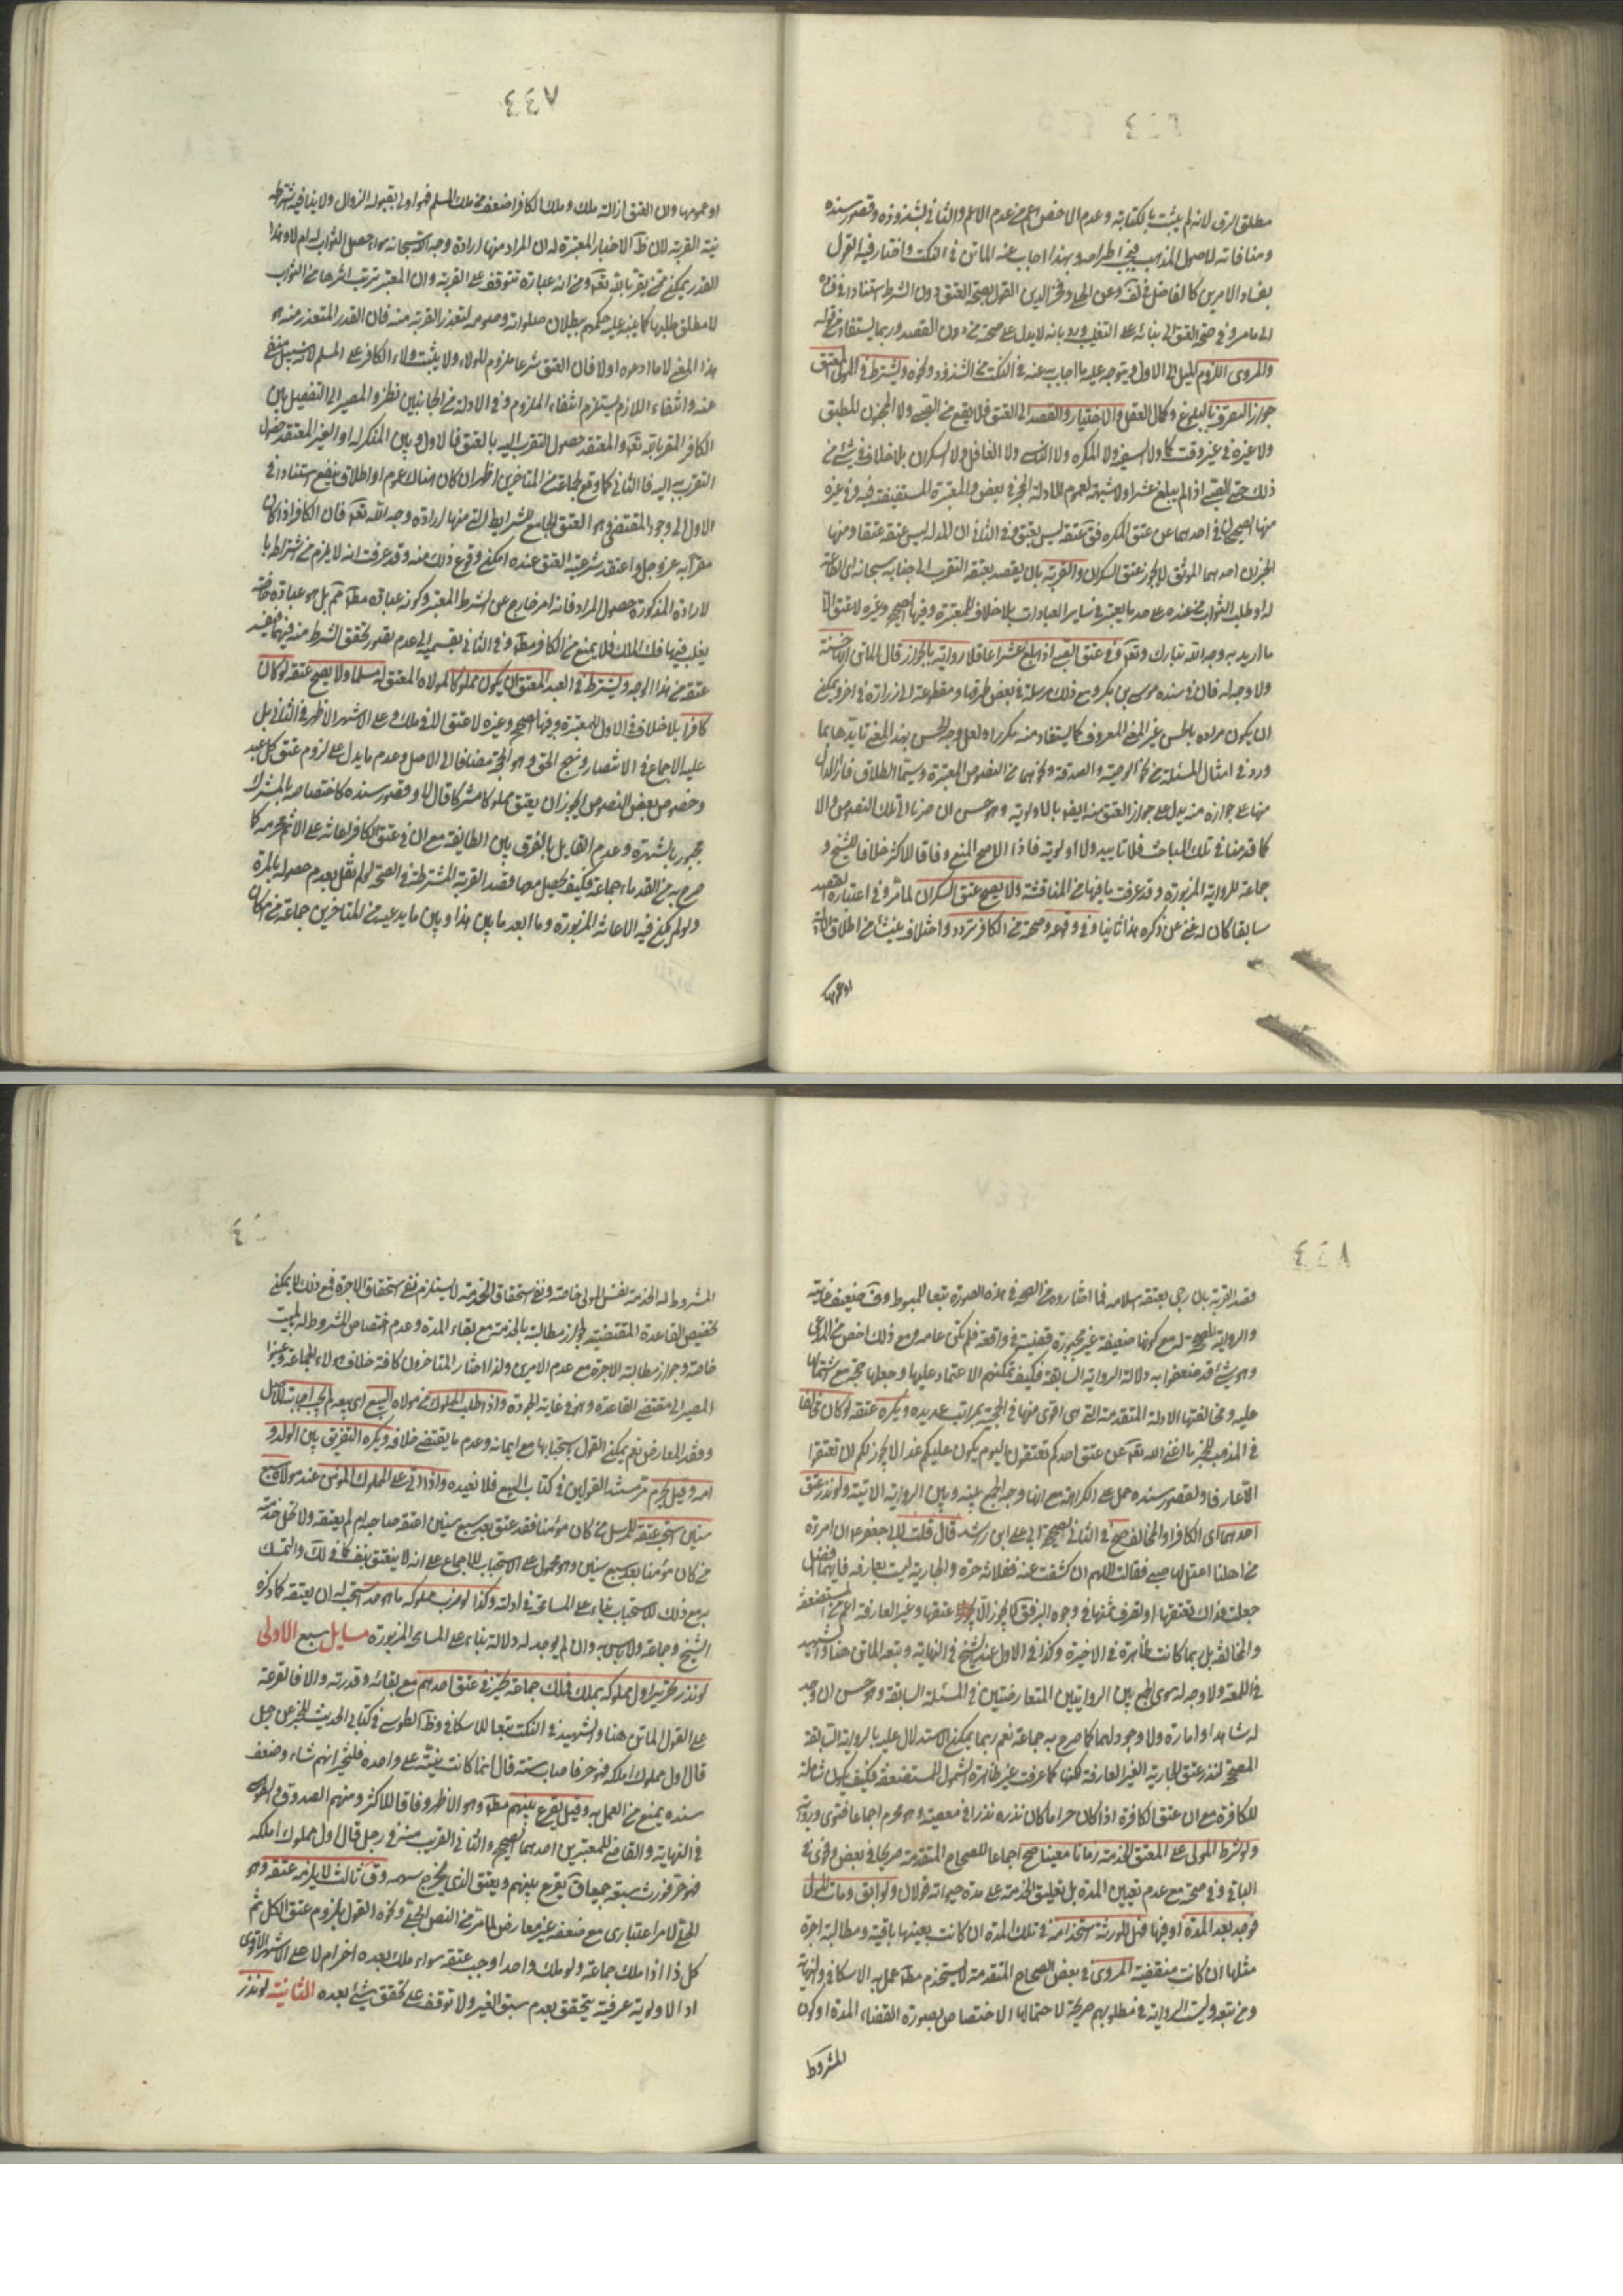 مطلق الرق لانه لم يثبت بالكتابة وعدم الاخص اعم من عدم الاعم والثاني بشذوذه وقصور سنده
ومنافاته لاصول المذهب فيجب اطراحه وبهذا اجاب عنه الماتن في النكت واختار فيه القول
بفساد الامرين كالفاضل في لف وعن الحلي وفخر الدين القول بصحة العتق دون الشرط استنادا في فساده
الى ما مر وفي صحة العتق الى بنائه على التغليب ورد بانه لا يدل على صحته من دون القصد وربما يستفاد من قوله
والمروي اللزوم الميل الى الاول ويتوجه عليه ما اجاب به عنه في النكت من الشذوذ ونحوه ويشترط في المولى المعتق
جواز التصرف بالبلوغ وكمال العقل والاختيار والقصد الى العتق فلا يقع من الصبي ولا المجنون المطبق
ولا غيره في غير وقت كماله ولا السفيه ولا المكره ولا الناسي ولا الغافل ولا السكران بلا خلاف في شئ من
ذلك حتى الصبي اذا لم يبلغ عشرا ولا شبهة لعموم الادلة الحجر في بعض والمعتبرة المستفيضة فيه وفي غيره
منها الصحيحان في احدهما عن عتق المكره فق عتقه ليس بعتق وفي الثاني ان المدله ليس عتقه عتقا ومنها
الخبران احدهما الموثق لا يجوز عتق السكران والقربة بان يقصد بعتقه التقرب الى جنابه سبحانه اي الطاعة
له او طلب الثواب من عنده على حد ما يعتبر في سائر العبادات بلا خلاف للمعتبرة وفيها الصحيح وغيره لا عتق الا
ما اريد به وجه الله تبارك وتعه وفي عتق الصبي اذا بلغ عشرا عاقلا رواية بالجواز قال الماتن انها حسنة
ولا وجه له فان في سنده موسى بن بكر ومع ذلك مرسلة في بعض طرقها ومقطوعة الى زرارة في اخر ويمكن
ان يكون مراده بالحسن غير المعنى المعروف كما يستفاد منه مكررا ولعل وجه الحسن بهذا المعنى تايدها بما
ورد في امثال المسئلة من نحو الوصية والصدقة ونحوهما من النصوص المعتبرة وسيما الطلاق فان الدال
منها على جوازه منه يدل على جواز العتق منه ايضا بالاولوية وهو حسن ان صرنا الى تلك النصوص والا
كما قدمنا في تلك المباحث فلا تاييد ولا اولوية فاذا الاصح المنع وفاقا للاكثر خلافا للشيخ و
جماعة للرواية المزبورة وقد عرفت ما فيها من المناقشة ولا يصح عتق السكران لما مر وفي اعتباره القصد
سابقا كان له غنى عن ذكره هذا ثانيا وفي وقوعه وصحته من الكافر تردد واختلاف ينشأ من اطلاق الادلة
او عمومها
٤٤٧
او عمومها وان العتق ازالة ملك وملك الكافر اضعف من ملك المسلم فهو اولى بقبوله الزوال ولا ينافيه شرطه
نية القربة لان ظ الاخبار المعتبرة له ان المراد منها ارادة وجه الله سبحانه سواء حصل الثواب له ام لا وهذا
القدر يمكن ممن يقر بالله تعه ومن انه عبادة تتوقف على القربة وان المعتبر ترتب اثرها من الثواب
لا مطلق طلبها كما ينبه عليه حكمهم ببطلان صلواته وصومه لتعذر القربة منه فان القدر المتعذر منه هو
هذا المعنى لا ما ادعوه اولا فان العتق شرعا ملزوم للولاء ولا يثبت ولاء الكافر على المسلم لانه سبيل منفي
عنه وانتفاء اللازم يستلزم انتفاء الملزوم وفي الادلة من الجانبين نظر والمصير الى التفصيل بين
الكافر المقر بالله تعه والمعتقد حصول التقرب اليه بالعتق فالاول وبين المنكر له او الغير المعتقد حصول
التقرب به اليه فالثاني كما وقع لجماعة من المتاخرين اظهر ان كان هناك عموم او اطلاق ينفع استنادا في
الاول الى وجود المقتضي وهو العتق الجامع للشرائط التي منها ارادة وجه الله تعه فان الكافر اذا كان
مقرا به عز وجل واعتقد شرعية العتق عنده امكن وقوع ذلك منه وقد عرفت انه لا يلزم من اشتراط ها
لارادة المذكورة حصول المراد فانه امر خارج عن الشرط المعتبر وكونه عبادة مطلقا مم بل هو عبادة خاصة
يغلب فيها فك الملك فلا يمنع من الكافر مطلقا وفي الثاني بقسميه الى عدم تحقق الشرط منه فيهما فيفسد
عتقه من هذا الوجه ويشترط في العبد المعتق ان يكون مملوكا لمولاه المعتق له مسلما ولا يصح عتقه لو كان
كافرا بلا خلاف في الاول للمعتبرة وفيها الصحيح وغيره لا عتق الا في ملك وعلى الاشهر الاظهر في الثاني بل
عليه الاجماع في الانتصار ونهج الحق وهو الحجة مضافا الى الاصل وعدم ما يدل على لزوم عتق كل عبد
وخصوص بعض النصوص ايجوز ان يعتق مملوكا مشركا قال لا وقصور سنده كاختصاصه بالمشرك
مجبور بالشهرة وعدم القايل بالفرق بين الطايفة مع ان في عتق الكافر اعانة على الاثم محرمة كما
صرح به من القدماء جماعة فكيف يحصل معها قصد القربة المشترطة في الصحة لو لم نقل بعدم حصوله بالمرة
ولو لم يكن فيه الاعانة المزبورة وما ابعد ما بين هذا وبين ما يدعيه من المتاخرين جماعة من امكان
٤٤٨
قصد القربة بان رجى بعتقه اسلامه فما اختاروه من الصحة في هذه الصورة تبعا للمبسوط وف ضعيف غايته
والرواية المصححة له مع كونها ضعيفة غير مجبورة قضية في واقعة فلم تكن عامة ومع ذلك اخص من المدعى
وهو شئ قد ضعفوا به دلالة الرواية السابقة فكيف يمكنهم الاعتماد عليها وجعلها حجة مع اشتمالها
عليه ومخالفتها الادلة المتقدمة التي هي اقوى منها في الحجية بمراتب عديدة ويكره عتقه لو كان مخالفا
في المذهب للخبر ما اغنى الله تعه عن عتق احدكم تعتقون اليوم يكون عليكم غدا لا يجوز لكم ان تعتقوا
الا عارفا ولقصور سنده حمل على الكراهة مع انها وجه الجمع بينه وبين الرواية الاتية ولو نذر عتق
احدهما اي الكافر او المخالف صح في الثاني للصحيح الى علي ابن راشد قال قلت لابي جعفر ع ان امراة
من اهلنا اعتل لها صبي فقالت اللهم ان كشفت عنه ففلانة حرة والجارية ليست بعارفة فايهما افضل
جعلت فداك تعتقها او تصرف ثمنها في وجوه البر فق لا يجوز الا عتقها وغير العارفة اعم من المستضعفة
والمخالفة بل ربما كانت ظاهرة في الاخيرة وكذا في الاول عند الشيخ في النهاية وتبعه الماتن هنا والشهيد
في اللمعة ولا وجه له سوى الجمع بين الروايتين المتعارضتين في المسئلة السابقة وهو حسن ان وجد
له شاهد او امارة ولا وجود لهما كما صرح به جماعة نعم ربما يمكن الاستدلال عليه بالرواية السابقة
المصحح لنذر عتق الجارية الغير العارفة لكنها كما عرفت غير ظاهرة الشمول للمستضعفة فكيف يكون شاملة
للكافرة مع ان عتق الكافرة اذا كان حراما كان نذره نذرا في معصية وهو محرم اجماعا فتوى ورواية
ولو شرط المولى على المعتق الخدمة زمانا معينا صح اجماعا للصحاح المتقدمة صريحا في بعض وفحوى في
الباقي وفي صحته مع عدم تعيين المدة بل تعليق الخدمة على مدة حيوته قولان ولو ابق ومات المولى
فوجد بعد المدة او فيها فهل للورثة استخدامه في تلك المدة ان كانت بعينها باقية ومطالبة اجرة
مثلها ان كانت منقضية المروي في بعض الصحاح المتقدمة لا يستخدم مطلقا عمل به الاسكافي والنهاية
ومن تبعه وليست الرواية في مطلوبهم صريحة لاحتمالها الاختصاص بصورة انقضاء المدة او كون
المشروط
المشروط له الخدمة نفس المولى خاصة ونفي استحقاق الخدمة لا يستلزم نفي استحقاق الاجرة فمع ذلك لا يمكن
تخصيص القاعدة المقتضية لجواز مطالبته بالخدمة مع بقاء المدة وعدم اختصاص المشروط له بالميت
خاصة وجواز مطالبة الاجرة مع عدم الامرين ولذا اختار المتاخرون كافة خلاف هؤلاء الجماعة وعينوا
المصير الى مقتضى القاعدة وهو في غاية الجودة واذا طلب المملوك من مولاه البيع اي بيعه لم يجب اجابته للاصل
وفقد المعارض نعم يمكن القول باستحبابها مع ايمانه وعدم ما يقتضي خلافه ويكره التفريق بين الولد و
امه وقيل يحرم مر مستند القولين في كتاب البيع فلا نعيده واذا اتى على المملوك المؤمن عند مولاه سبع
سنين استحب عتقه للمرسل من كان مؤمنا فقد عتق بعد سبع سنين اعتقه صاحبه ام لم يعتقه ولا تحل خدمة
من كان مؤمنا بعد سبع سنين وهو محمول على الاستحباب للاجماع على انه لا ينعتق بنفسه كما في لك والتمسك
به مع ذلك للاستحباب بناء على المسامحة في ادلته وكذا لو ضرب مملوكه ما هو حد استحب له ان يعتقه كما ذكره
الشيخ وجماعة ولا باس به وان لم يوجد له دلالة بناء على المسامحة المزبورة مسايل سبع الاولى
لو نذر تحرير اول مملوك يملكه فملك جماعة تخير في عتق احدهم مع بقائه وقدرته والا فالقرعة
على القول الماتن هنا والشهيد في النكت تبعا للاسكافي وظ الطوسي في كتابي الحديث للخبر عن رجل
قال اول مملوك املكه فهو حر فاصاب ستة قال انما كانت نيته على واحد فليختر ايهم شاء وضعف
سنده يمنع من العمل به وقيل يقرع بينهم مطلقا وهو الاظهر وفاقا للاكثر ومنهم الصدوق والطوسي
في النهاية والقاضي للمعتبرين احدهما الصحيح والثاني القريب منه في رجل قال اول مملوك املكه
فهو حر فورث سبعة جميعا ق يقرع بينهم ويعتق الذي يخرج سهمه وق ثالث لا يلزمه عتقه وهو
الحلي لامر اعتباري مع ضعفه غير معارض لما مر من النص الجلي ونحوه القول بلزوم عتق الكل ثم
كل ذا اذا ملك جماعة ولو ملك واحدا وجب عتقه سواء ملك بعده اخر ام لا على الاشهر الاقوى
اذ الاولوية عرفية يتحقق بعدم سبق الغير ولا توقف على تحقق شئ بعده الثانية لو نذر